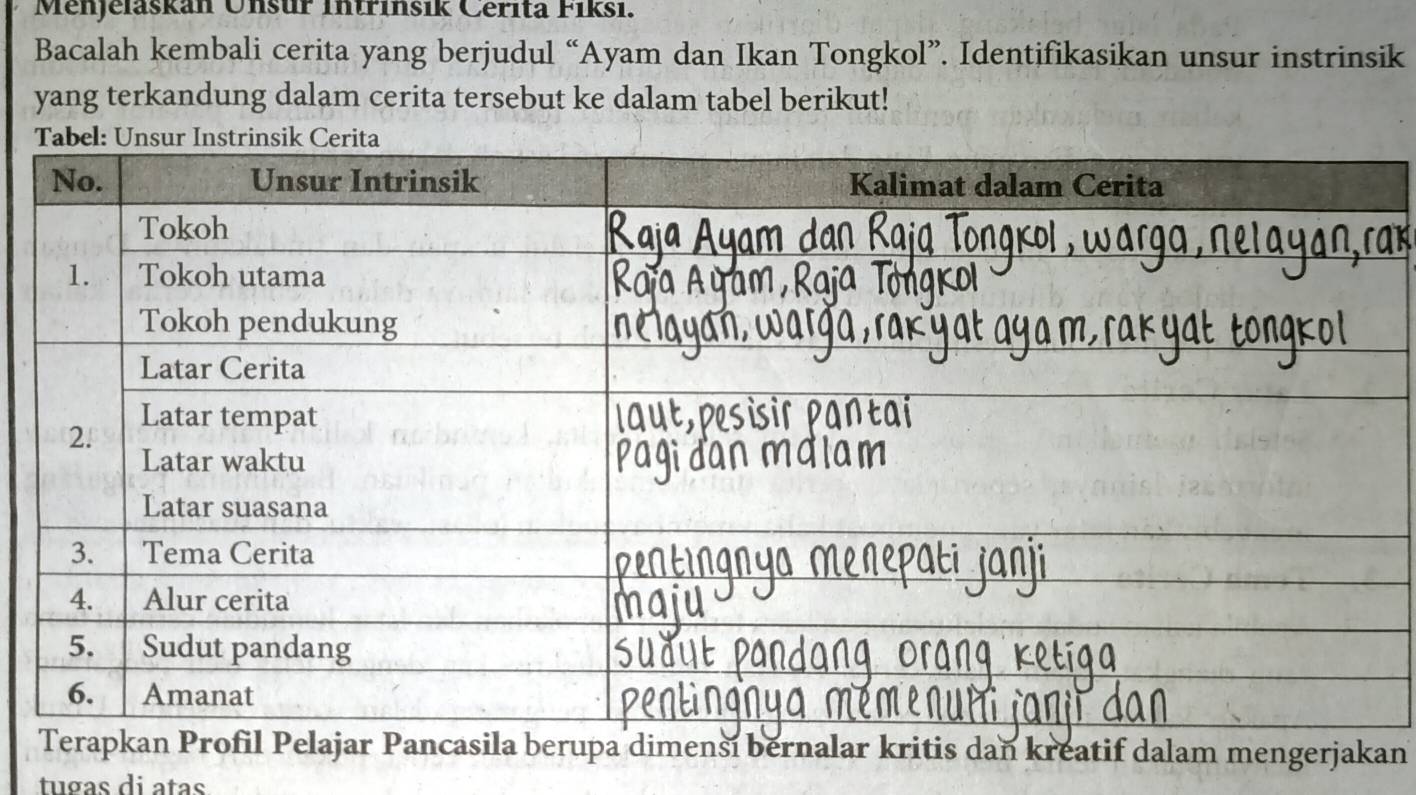 Menjelaskan Unsur Intrinsik Cerita Fiksi.
Bacalah kembali cerita yang berjudul “Ayam dan Ikan Tongkol”. Identifikasikan unsur instrinsik
yang terkandung dalam cerita tersebut ke dalam tabel berikut!
Tabel: Unsur Instrinsik Cerita
No. Unsur Intrinsik Kalimat dalam Cerita
Tokoh Raja Ayam dan Raja Tongkol, warga, nelayan, rak
1. Tokoh utama Raja Ayam, Raja Tongkol
Tokoh pendukung nelayan, warga, rakyat ayam, rakyat tongkol
Latar Cerita
2. Latar tempat laut, pesisir pantai
Latar waktu pagi dan malam
Latar suasana
3. Tema Cerita pentingnya menepati janji
4. Alur cerita maju
5. Sudut pandang sudut pandang orang ketiga
6. Amanat pentingnya janji dan
Terapkan Profil Pelajar Pancasila berupa dimensi bernalar kritis dan kreatif dalam mengerjakan
tugas di atas